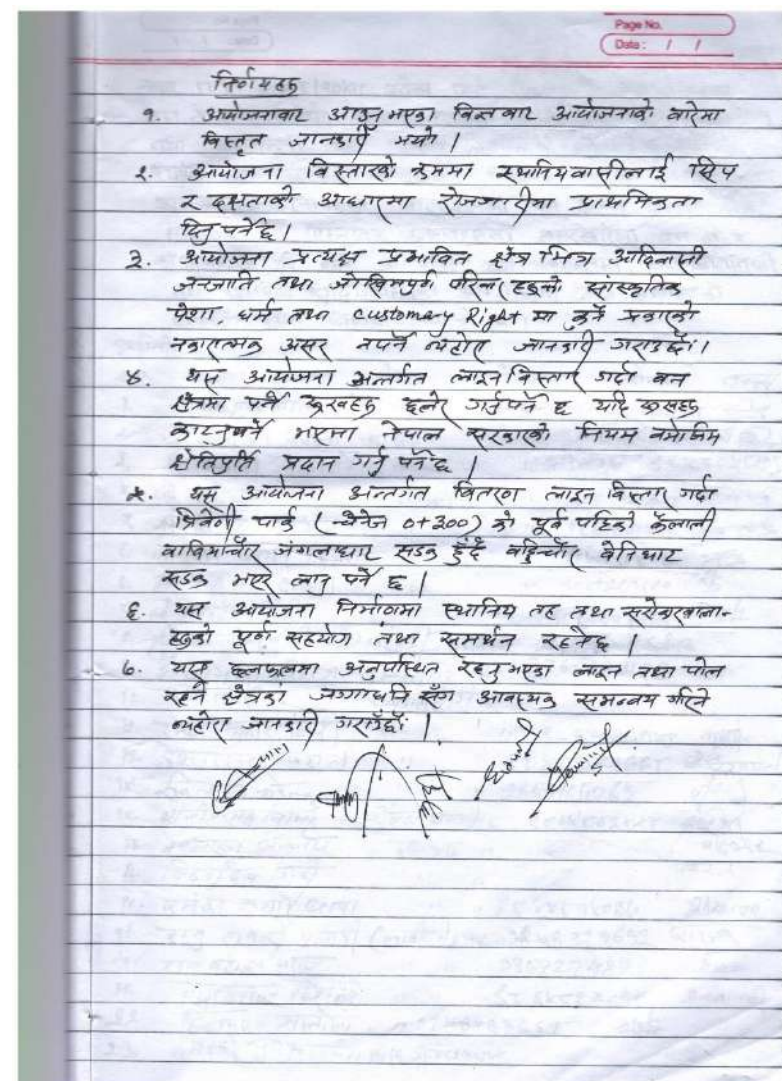 Page No.
Date: / /
निर्णयहरु
१. आयोजनाबाट आउनु भएका मित्रबाट आयोजनाको बारेमा
विस्तृत जानकारी भयो ।
२. आयोजना विस्तारको क्रममा स्थानियवासीलाई सिप
र दक्षताको आधारमा रोजगारीमा प्राथमिकता
दिनु पर्नेछ ।
३. आयोजना प्रत्यक्ष प्रभावित क्षेत्र भित्र आदिवासी
जनजाति तथा जोखिमपुर्ण परिवारहरुको सांस्कृतिक
पेशा, धर्म तथा customary Right मा कुनै प्रकारको
नकारात्मक असर नपर्ने व्यहोरा जानकारी गराउछौं ।
४. यस आयोजना अन्तर्गत लाइन विस्तार गर्दा वन
क्षेत्रमा पर्ने रुखहरु छलेर गर्नुपर्ने छ यदि रुखहरु
काट्नुपर्ने भएमा नेपाल सरकारको नियम बमोजिम
क्षेतिपुर्ति प्रदान गर्नु पर्नेछ ।
५. यस आयोजना अन्तर्गत वितरण लाइन विस्तार गर्दा
त्रिवेणी पार्क (चेनेज 0+300) को पूर्व पट्टिको कैलाली
जंगलघार सडक हुँदै वेनिघाट
सडक भएर लानु पर्ने छ ।
६. यस आयोजना निर्माणमा स्थानिय तह तथा सरोकारवाला-
हरुको पूर्ण सहयोग तथा समर्थन रहनेछ ।
७. यस छलफलमा अनुपस्थित रहनु भएका लाइन तथा पोल
रहने क्षेत्रका जग्गाधनि सँग आवश्यक समन्वय गरिने
व्यहोरा जानकारी गराउँछौं ।